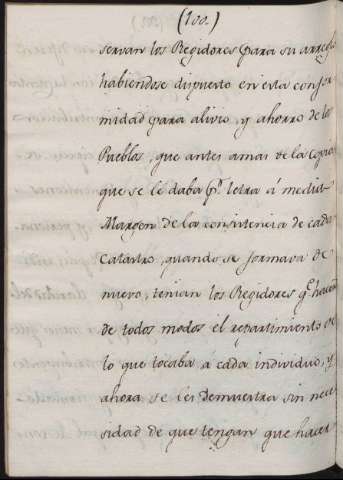 (100.)
servan los Regidores para su arreglo
habiendose dispuesto en esta confor-
midad para alivio, y ahorro de los
Pueblos, que antes amas de la Copia
que se le daba pr. letra á media
Margen de la consistencia de cada
Catastro, quando se formava de
nuevo, tenian los Regidores qe. hacer
de todos modos el repartimiento de
lo que tocaba á cada individuo, y
ahora se les demuestra sin nece-
sidad de que tengan que hacer